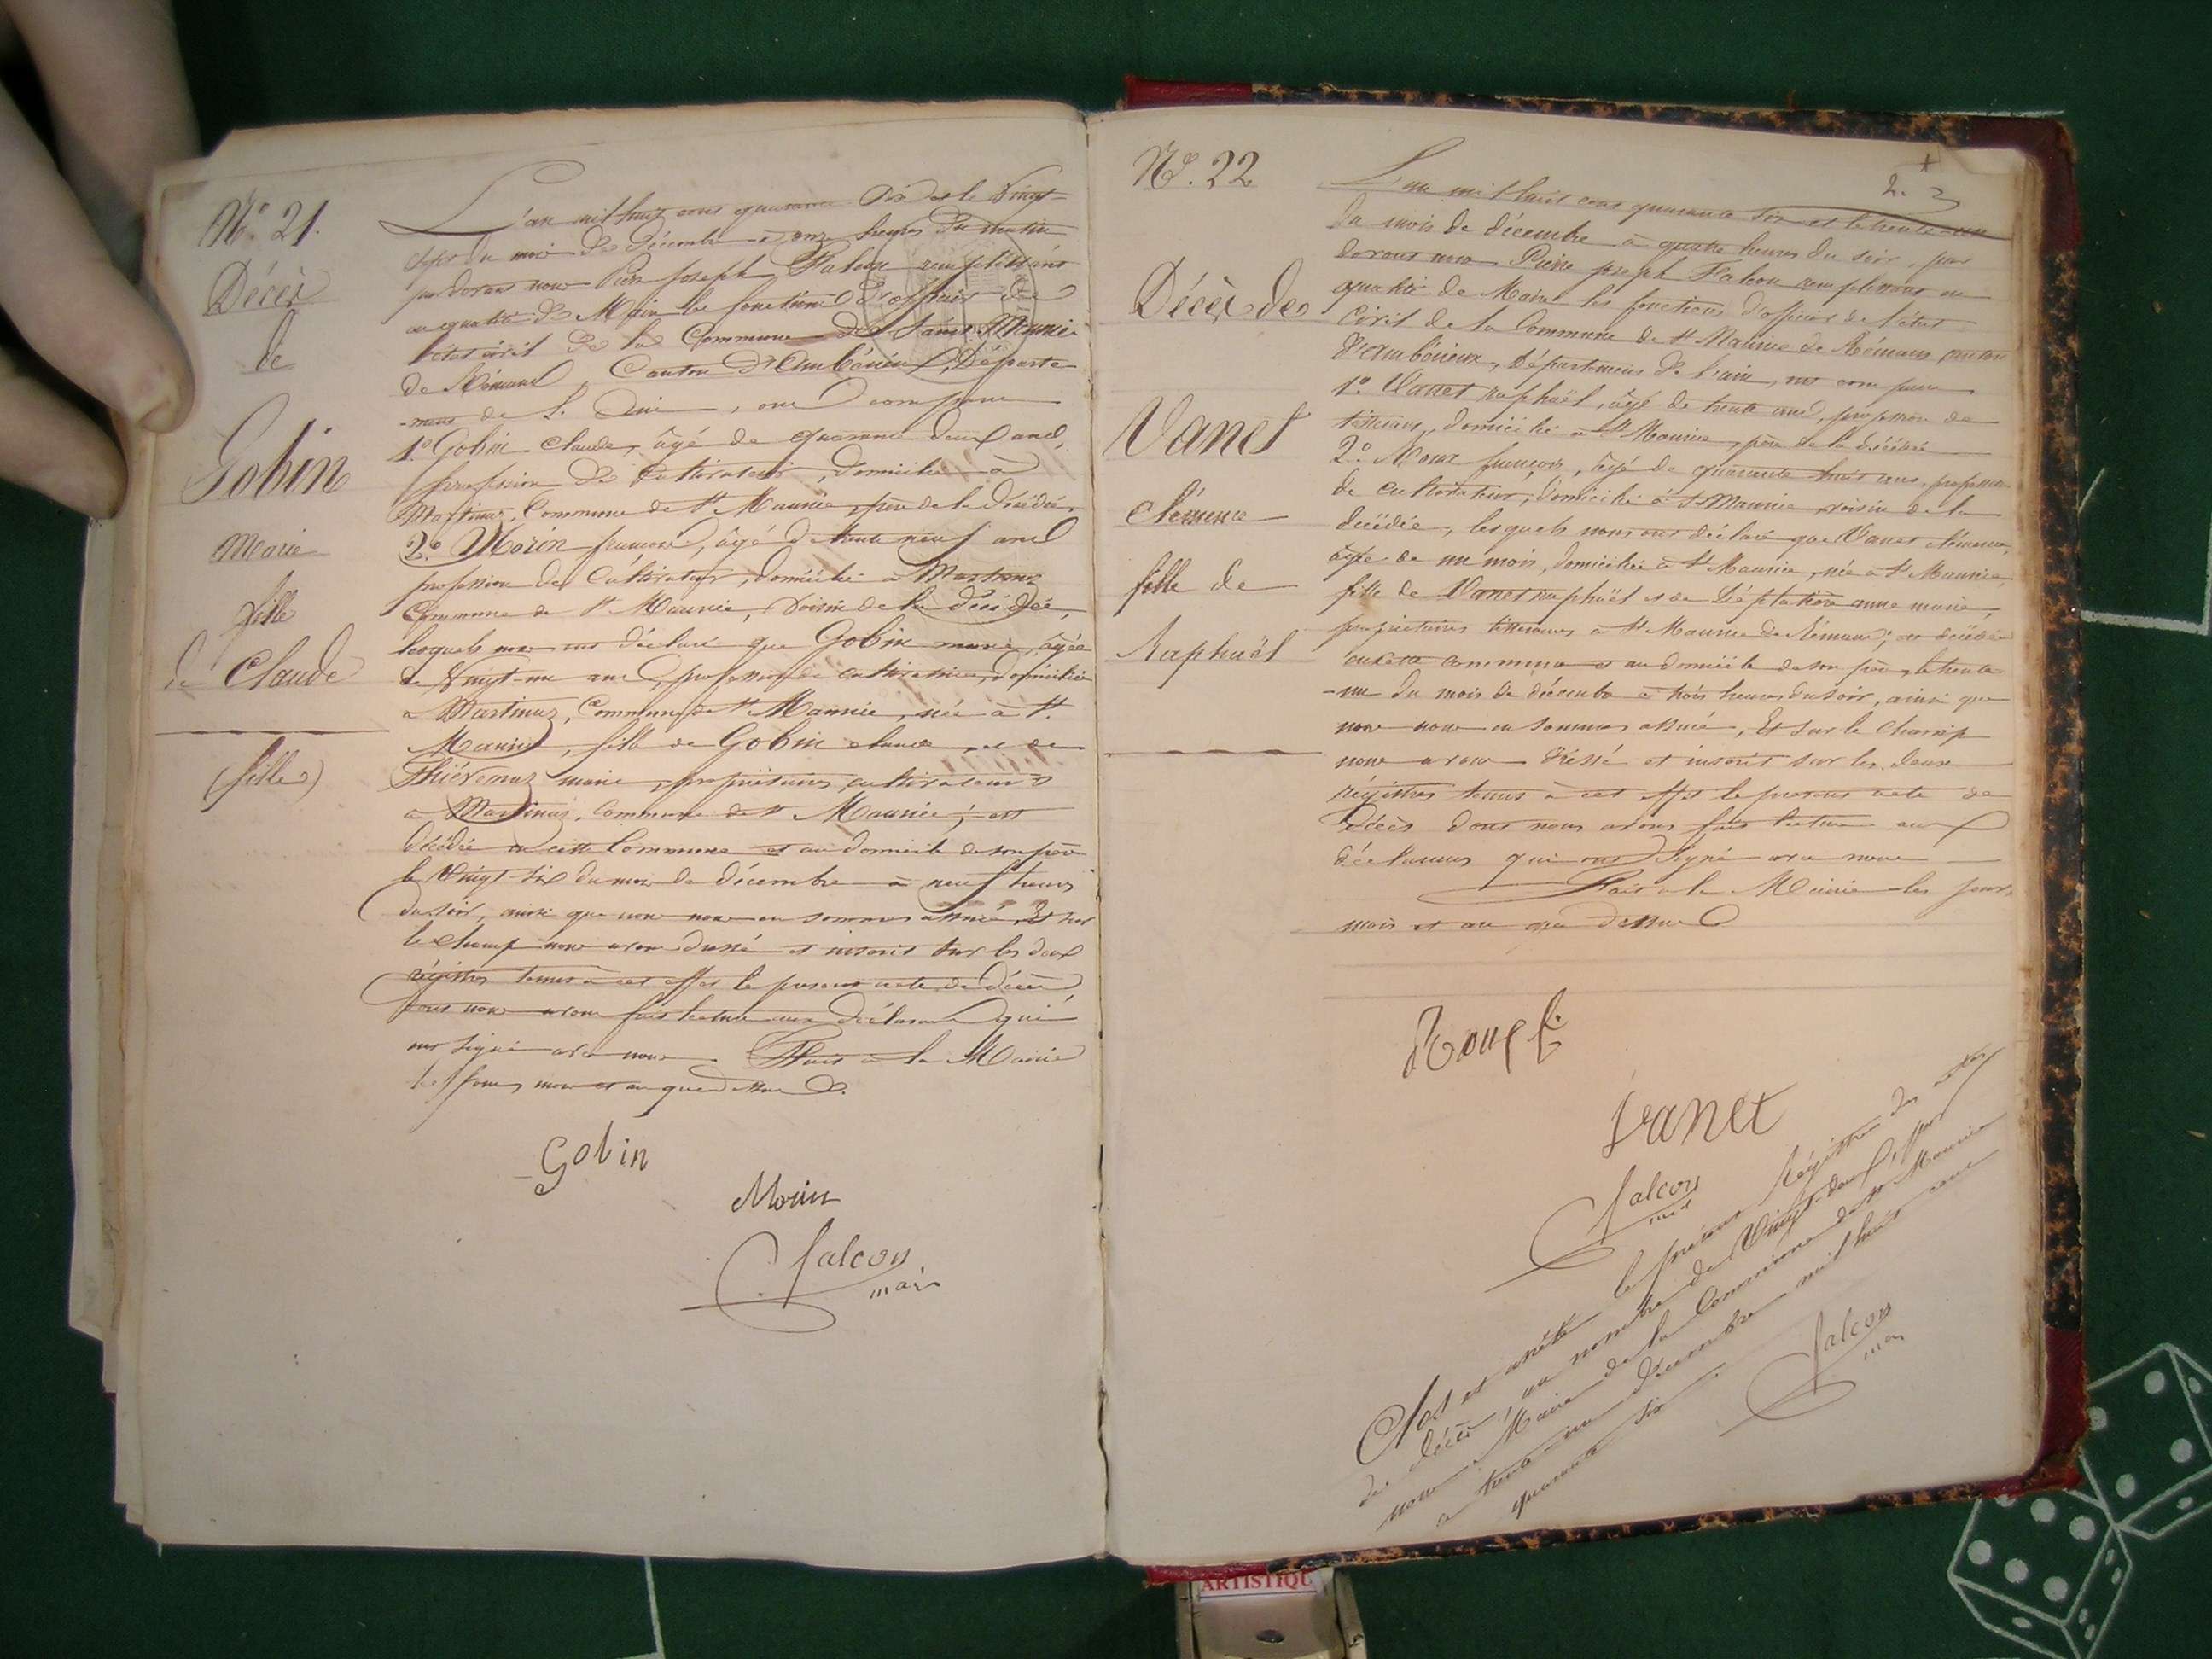 N° 21.
Décès
de
Gobin
Marie
fille
de Claude
(fille)
L'an mil huit cent quarante Six et le Vingt-
sept du mois de Décembre à onze heures du matin
par devant nous Pierre Joseph Falcon remplissant
en qualité de Maire les fonctions d'officier de
l'état civil de la Commune de Saint Maurice
de Rémens, Canton d'Ambérieux, Départe-
-ment de L'Ain, ont comparu
1° Gobin Claude, âgé de quarante deux ans,
profession de Cultivateur, domicilié à
Martinaz, Commune de St Maurice, père de la décédée,
2° Morin françois, âgé de trente neuf ans
profession de Cultivateur, domicilié à Martinaz
Commune de St Maurice, Voisin de la décédée,
lesquels nous ont déclaré que Gobin marie, âgée
de Vingt-un ans, profession de cultivatrice, domiciliée
à Martinaz, Commune de St Maurice, née à St.
Maurice, fille de Gobin claude, et de
Thiévenaz marie, propriétaires cultivateurs
à Martinaz, Commune de St Maurice; est
décédée en cette Commune et au domicile de son père
le Vingt-six du mois de décembre à neuf heures
du soir, ainsi que nous nous en sommes assuré, Et sur
le champ nous avons dressé et inscrit sur les deux
régistres tenus à cet effet le présent acte de décès
dont nous avons fait lecture aux déclarants qui
ont signé avec nous. Fait à la Mairie
les jour, mois et an que dessus.
Gobin
Morin
falcon
maire
N°. 22
Décès de
Vanet
clémence
fille de
Raphaël
2. 3
L'an mil huit cent quarante six et le trente-un
du mois de décembre à quatre heures du soir, par
devant nous Pierre joseph Falcon remplissant en
qualité de Maire les fonctions d'officier de l'état
Civil de la Commune de St Maurice de Rémens, canton
d'Ambérieux, Département de l'ain, ont comparu
1° Vanet raphaël, âgé de trente ans, profession de
tisserand, domicilié à St Maurice, père de la décédée
2° Roux françois, âgé de quarante huit ans, profession
de Cultivateur, domicilié à St Maurice, voisin de la
décédée, lesquels nous ont déclaré que Vanet clémence,
âgée de un mois, domiciliée à St Maurice, née à St Maurice
fille de Vanet raphaël et de anne marie,
propriétaires tisserands à St Maurice de Rémens; est décédée
en cette commune et au domicile de son père, le trente
-un du mois de décembre à trois heures du soir, ainsi que
nous nous en sommes assuré, Et sur le Champ
nous avons dressé et inscrit sur les deux
régistres tenus à cet effet le présent acte de
Décès dont nous avons fait lecture aux
déclarants qui ont signé avec nous
Fait à la Mairie les jour,
mois et an que dessus
Roux f.
vanet
falcon
Clos et arrêté le présent Régistre des actes
de décès, au nombre de Vingt-deux, par
nous Maire de la Commune de St Maurice
à trente-un décembre mil huit cent
quarante six.
falcon